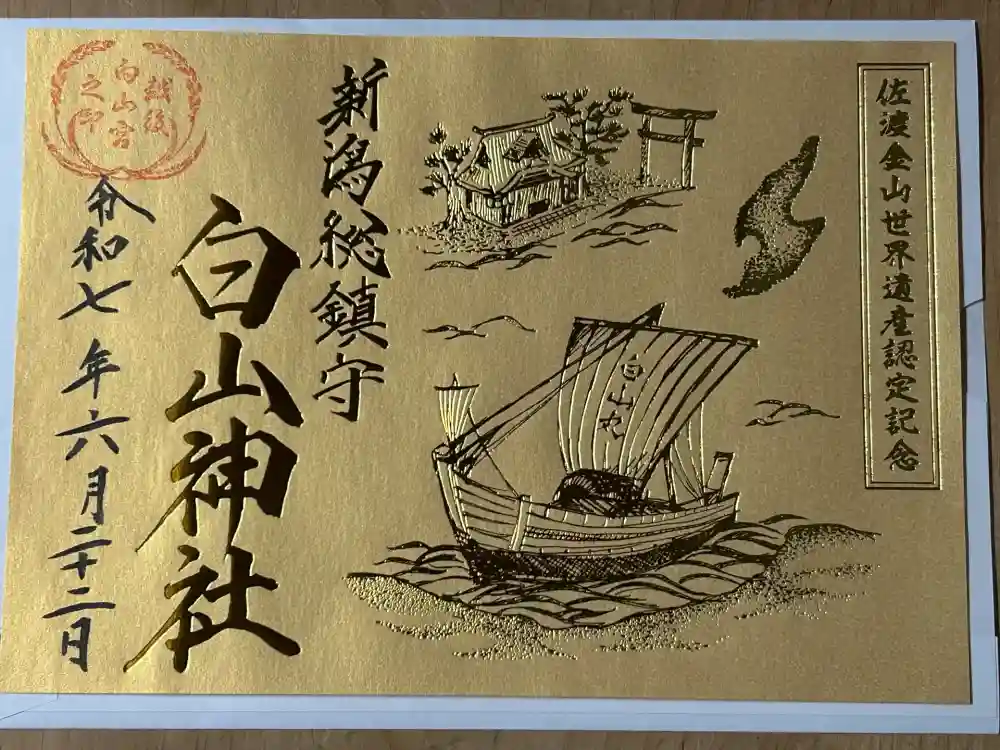 佐渡金山世界遺産認定記念
白山丸
新潟総鎮守
白山神社
越後
白山宮
之印
令和七年六月二十二日